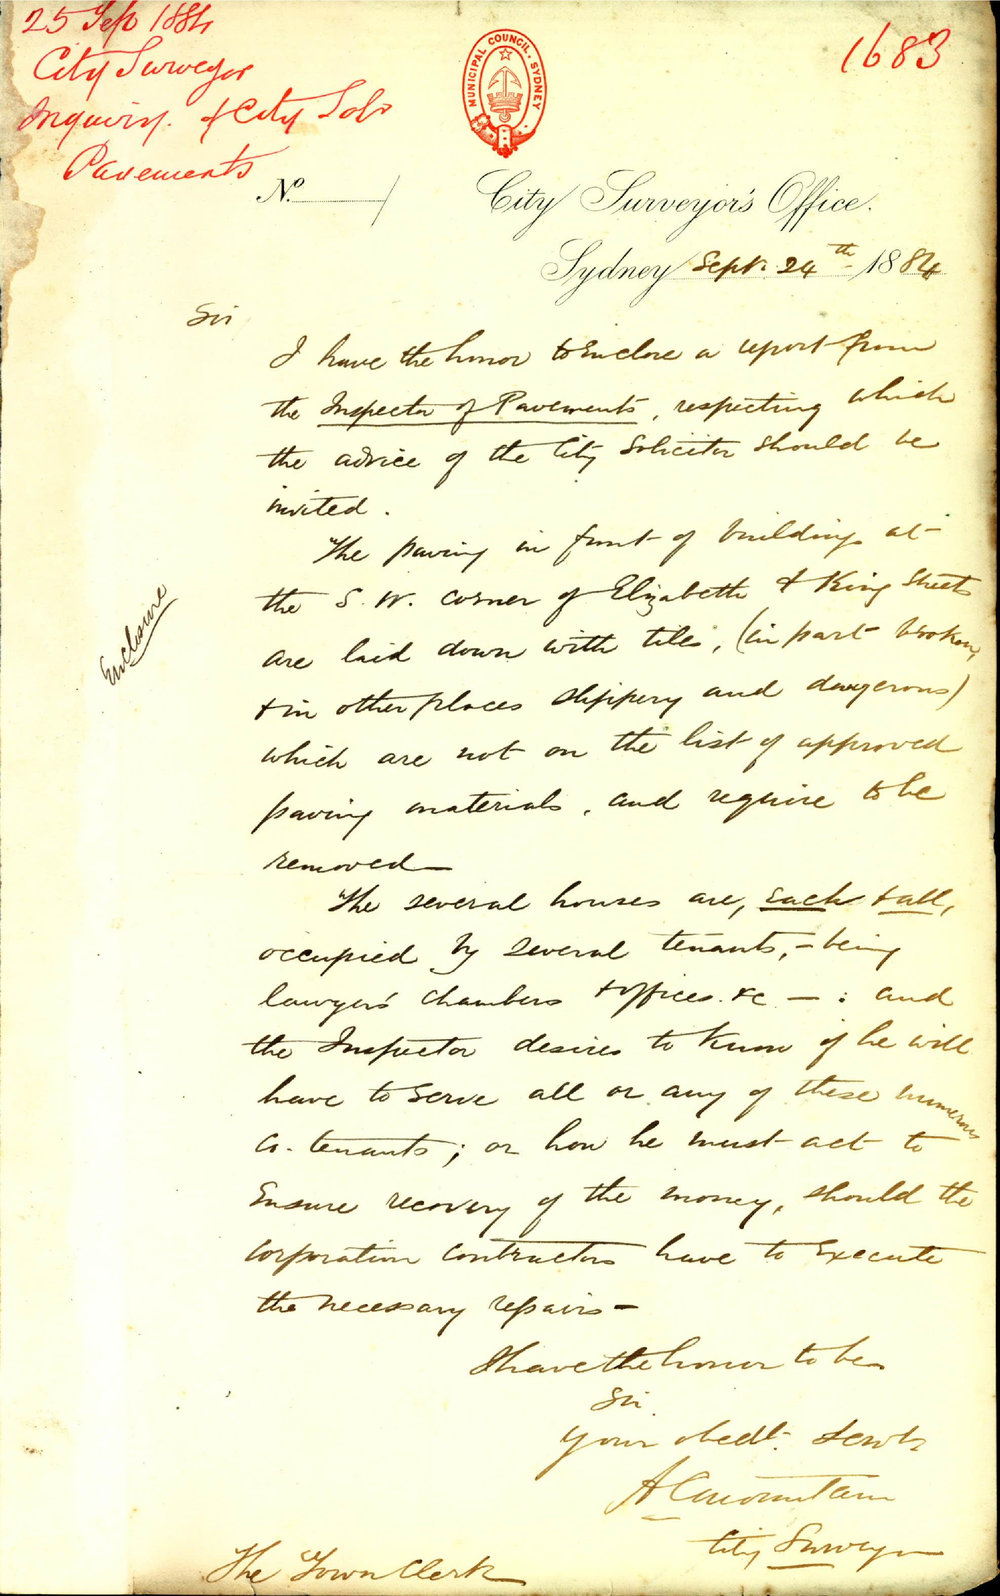 25 Sep 1884
City Surveyor
Inquiry. of City Solr
Pavements
1683
MUNICIPAL COUNCIL. SYDNEY
No. /
City Surveyor's Office.
Sydney Sept. 24th 1884
Sir
I have the honor to enclose a report from
the Inspector of Pavements, respecting which
the advice of the City Solicitor should be
invited.
The paving in front of buildings at
the S. W. corner of Elizabeth & King Streets
are laid down with tiles, (in part broken,
& in other places slippery and dangerous)
which are not on the list of approved
paving materials, and require to be
removed—
The several houses are, each & all,
occupied by several tenants, – being
lawyers' chambers & offices. &c — : and
the Inspector desires to know if he will
have to serve all or any of these numerous
co-tenants; or how he must act to
ensure recovery of the money, should the
Corporation Contractors have to execute
the necessary repairs –
I have the honor to be
Sir
Your obedt. Servt
A
City Surveyor
The Town Clerk
Enclosure